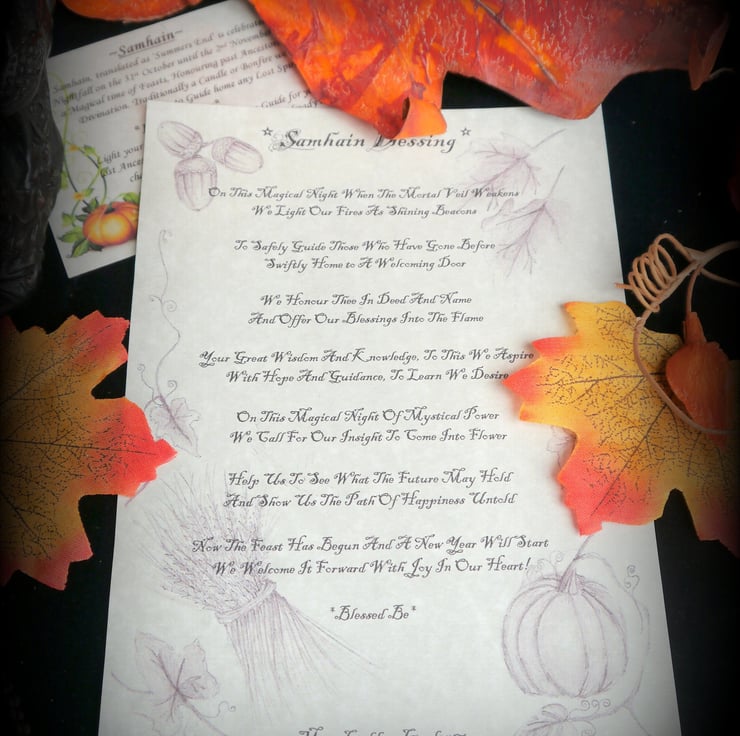 ~Samhain~
Samhain, translated as 'Summers End' is celebrated
Nightfall on the 31st October until the 2nd November
a Magical time of Feasts, Honouring past Ancestors
Divination. Traditionally a Candle or Bonfire
to Guide home any Lost
Guide for
Light your
* Samhain Blessing *
On This Magical Night When The Mortal Veil Weakens
We Light Our Fires As Shining Beacons
To Safely Guide Those Who Have Gone Before
Swiftly Home to A Welcoming Door
We Honour Thee In Deed And Name
And Offer Our Blessings Into The Flame
Your Great Wisdom And Knowledge, To This We Aspire
With Hope And Guidance, To Learn We Desire
On This Magical Night Of Mystical Power
We Call For Our Insight To Come Into Flower
Help Us To See What The Future May Hold
And Show Us The Path Of Happiness Untold
Now The Feast Has Begun And A New Year Will Start
We Welcome It Forward With Joy In Our Heart!
*Blessed Be*